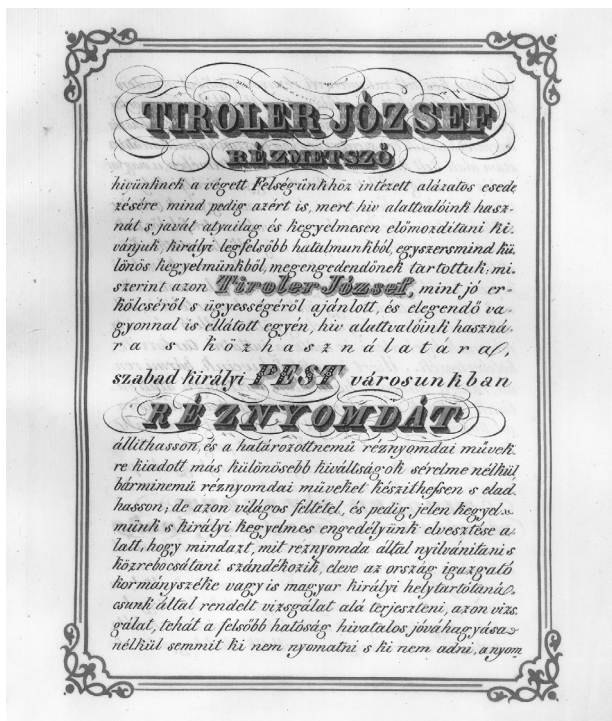 TIROLER JÓZSEF
RÉZMETSZŐ
hivünknek a végett Felségünkhöz intézett alázatos esede
zésére, mind pedig azért is, mert hiv alattvalóink hasz-
nát s javát atyailag és kegyelmesen előmozditani ki-
vánjuk, királyi legfelsőbb hatalmunkból, egyszersmind kü-
lönös kegyelmünkből, megengedendőnek tartottuk; mi-
szerint azon Tiroler József, mint jó er-
kölcséről s ügyességéről ajánlott, és elegendő va-
gyonnal is ellátott egyén, hiv alattvalóink haszná-
ra s közhasználatára,
szabad királyi PEST városunkban
RÉZNYOMDÁT
állithasson, és a határozottnemű réznyomdai művek
re kiadott más különösebb kiváltságok sérelme nélkül
bárminemű réznyomdai műveket készithessen s elad
hasson; de azon világos feltétel, és pedig jelen kegyel-
münk s királyi kegyelmes engedélyünk elvesztése a-
latt, hogy mindazt, mit réznyomda által nyilvánitani s
közrebocsátani szándékozik, eleve az ország igazgató
kormányszéke vagyis magyar királyi helytartótaná-
csunk által rendelt vizsgálat alá terjeszteni, azon vizs-
gálat, tehát a felsőbb hatóság hivatalos jóváhagyása
nélkül semmit ki nem nyomatni s ki nem adni, a nyom